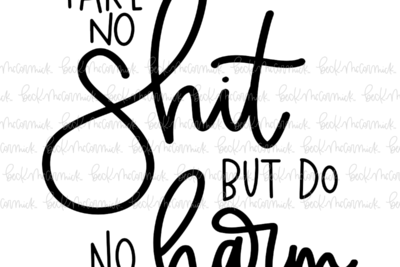 TAKE
NO
Shit
BUT DO
NO harm